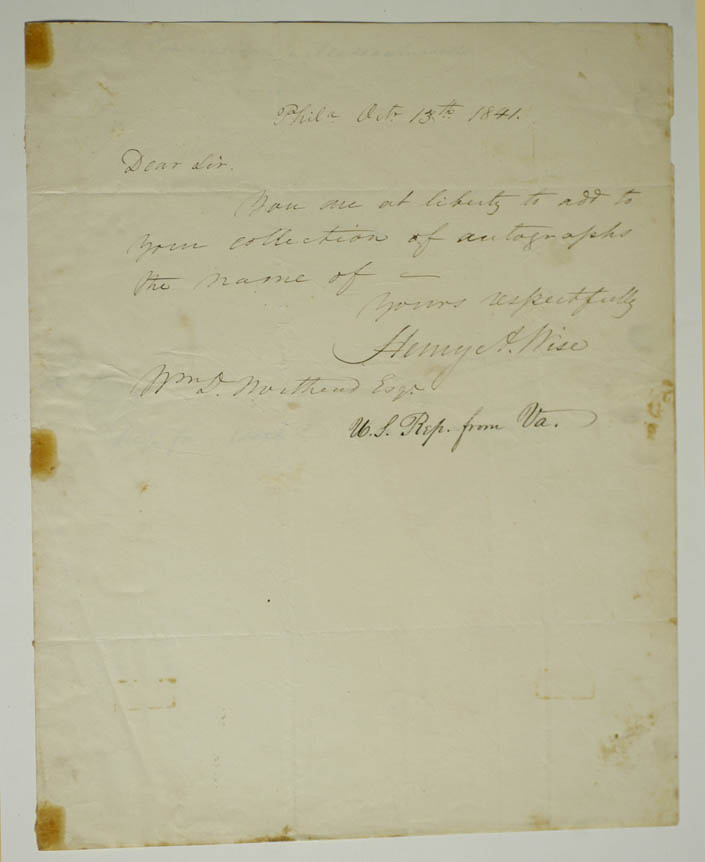 Phila Octr 13th 1841.
Dear Sir.
You are at liberty to add to
your collection of autographs
the name of —
yours respectfully
Henry A. Wise
Wm D. Northend Esqr
U.S. Rep. from Va.